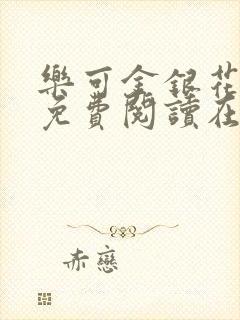 樂可金銀花
免費閱讀在
赤戀